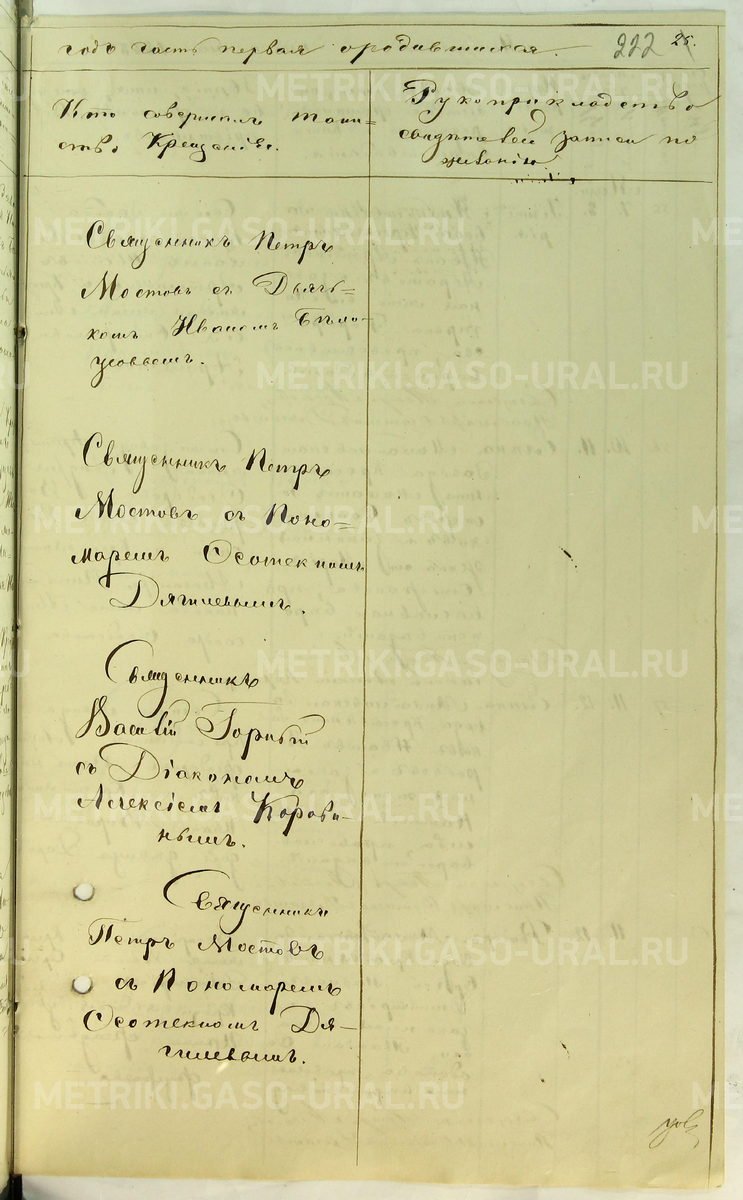 годъ часть первая о родившихся. 222 25.
Кто совершилъ таин=
ство Крещенія.
Рукоприкладство
свидѣтелей записи по
желанію
Священникъ Петръ
Мостовъ съ Дьяч=
комъ Иваномъ Бѣло-
усовымъ.
Священникъ Петръ
Мостовъ съ Поно=
маремъ Ѳеотекномъ
Дягилевымъ.
Священникъ
Василій Горныхъ
съ Діакономъ
Алексіемъ Корови-
нымъ.
Священникъ
Петръ Мостовъ
съ Пономаремъ
Ѳеотекномъ Дя-
гилевымъ.
METRIKI.GASO-URAL.RU